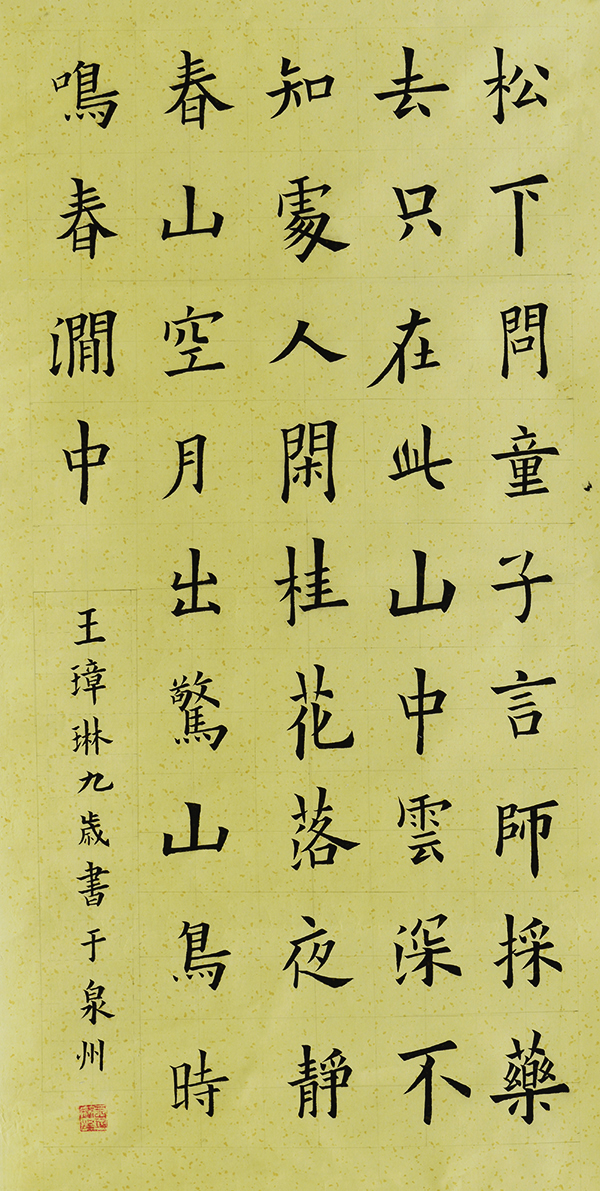 松下問童子言師採藥
去只在此山中雲深不
知處人閑桂花落夜靜
春山空月出驚山鳥時
鳴春澗中
王璋琳九歲書于泉州